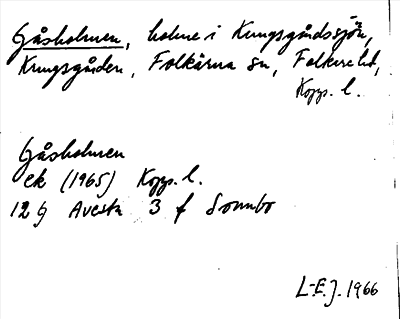 Gåsholmen, holme i Kungsgårdssjön,
Kungsgården, Folkärna sn, Folkare hd,
Kopp. l.
Gåsholmen
ek (1965) Kopp. l.
12 G Avesta 3 f Sonnbo
L-E.J. 1966